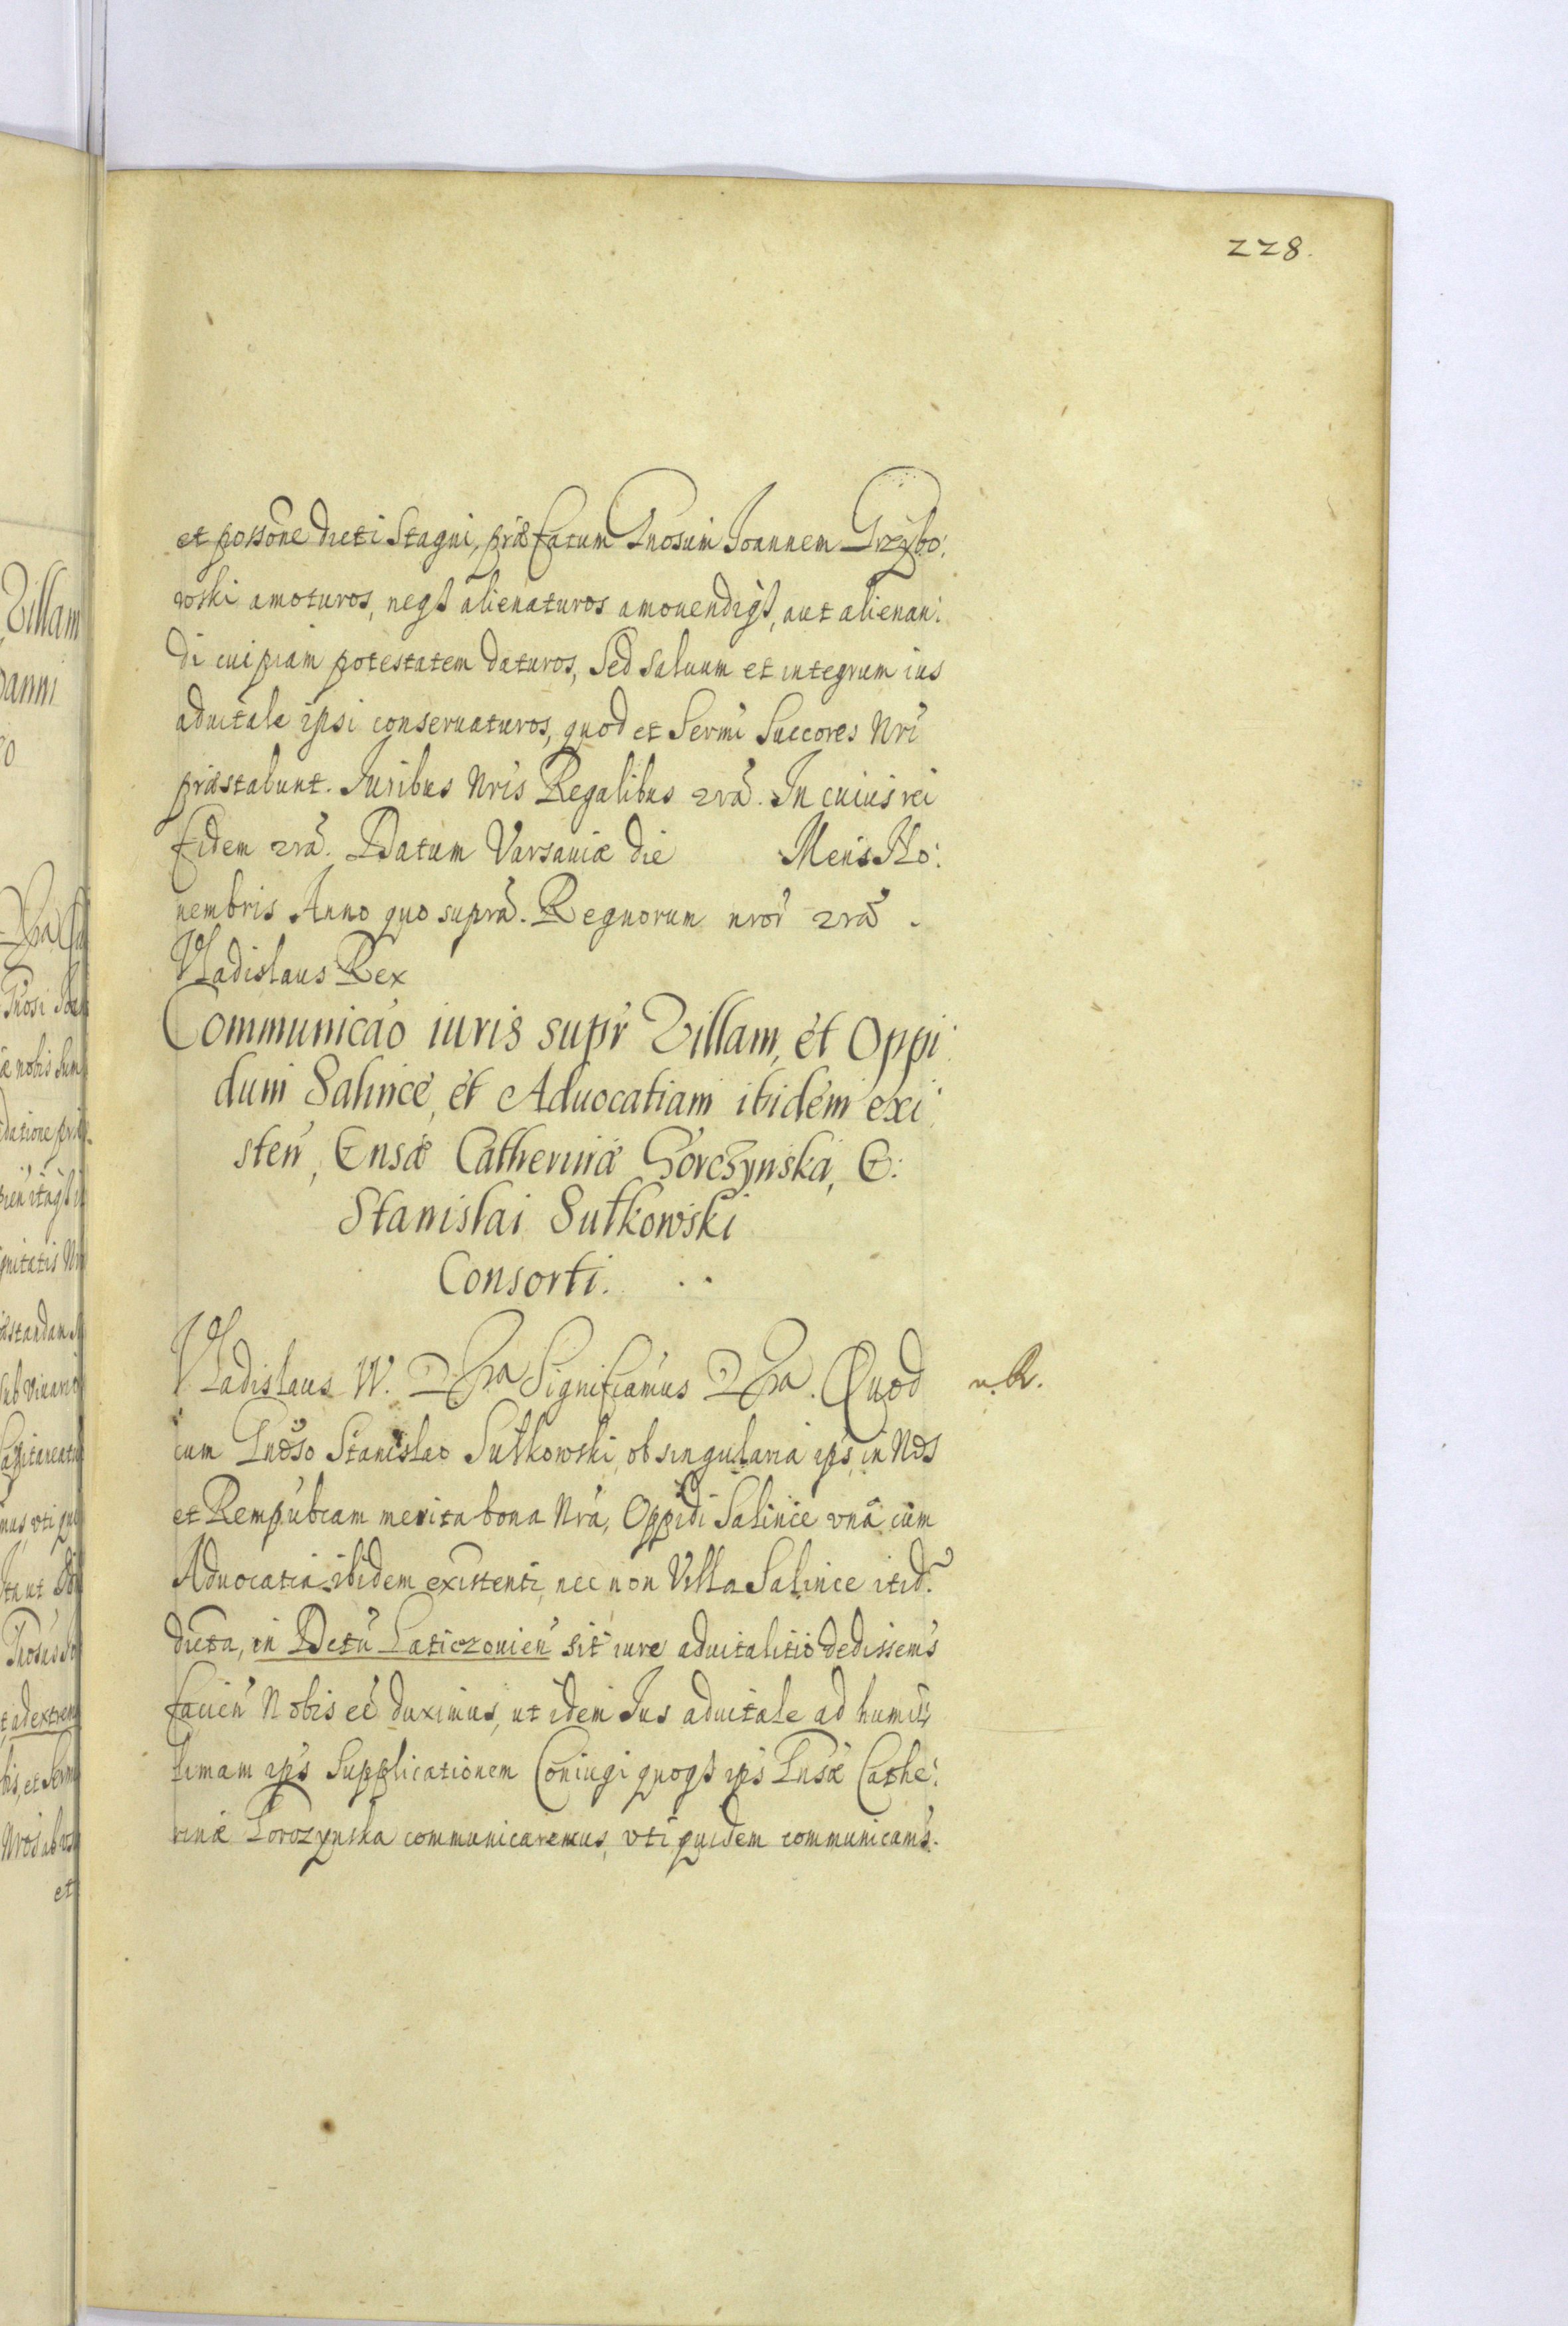 228.
et possone dicti Stagni, præfatum Gnosum Joannem Grzybo:
wski amoturos, neqȝ alienaturos amouendiqȝ, aut alienan:
di cuipiam potestatem daturos, Sed saluum et integrum ius
aduitale ipsi conseruaturos, quod et Sermi Succores Nri
præstabunt. Iuribus Nris Regalibus 2rã. In cuius rei
fidem 2rã. Datum Varsauiæ die Mens No:
uembris Anno quo suprà. Regnorum nror 2rã.
Vladislaus Rex
Communicão iuris supr Villam, et Oppi:
dum Salince, et Aduocatiam ibidem exi:
sten, Gnsæ Catherinæ Gorczynska, G:
Stanislai Sułkowski
Consorti.
Vladislaus IV. Dgra Significamus 2ra. Quod n. R.
cum Gnoso Stanislao Sułkowski, ob singularia ips in Nos
et Rempubcam merita bona Nra, Oppidi Salince vnà cum
Aduocatia ibidem existenti, nec non Villa Salince itid.
dicta, in Dctu Laticzouien sit iure aduitalitio dedissems
facien Nobis eē duximus, ut idem Ius aduitale ad humil,
limam ips Supplicationem Coniugi quoqȝ ips Gnsæ Cathe:
rinæ Gorozynska communicaremus, vti quidem communicams.